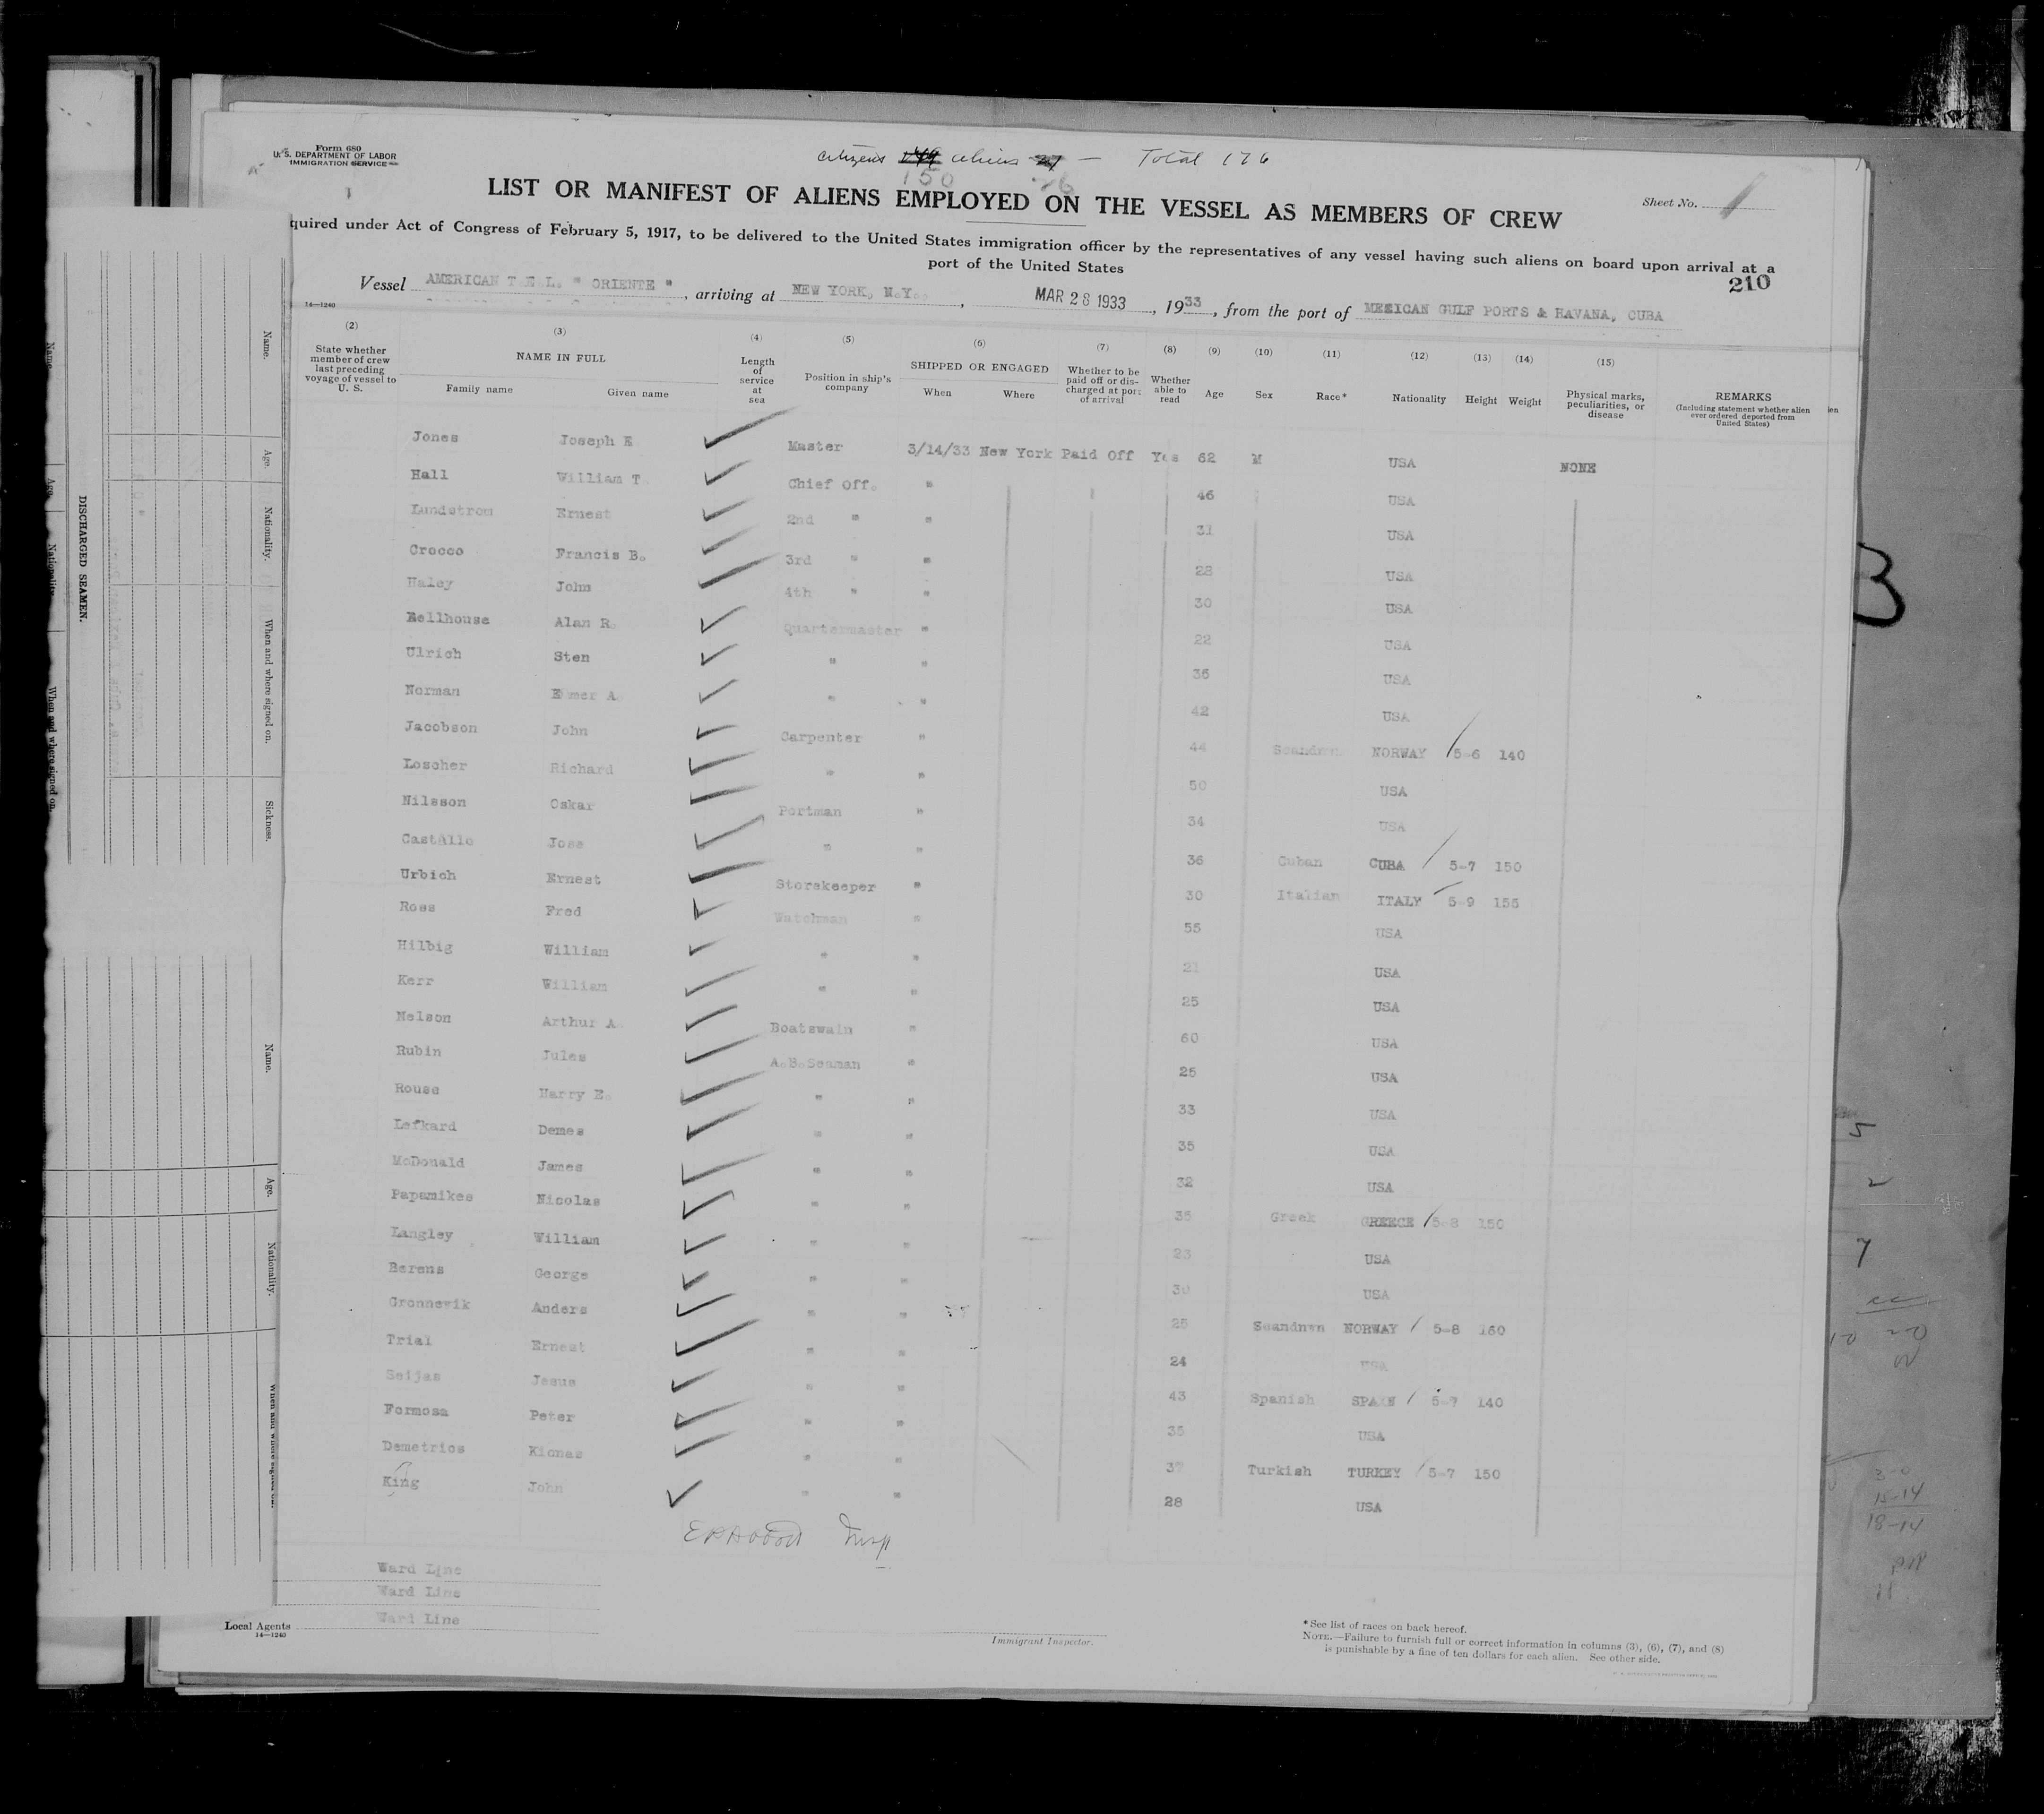 Form 680
U. S. DEPARTMENT OF LABOR
IMMIGRATION SERVICE
citizens 150 aliens 26 — Total 176
LIST OR MANIFEST OF ALIENS EMPLOYED ON THE VESSEL AS MEMBERS OF CREW
Sheet No. 1
quired under Act of Congress of February 5, 1917, to be delivered to the United States immigration officer by the representatives of any vessel having such aliens on board upon arrival at a
port of the United States
210
Vessel AMERICAN T.E.L. " ORIENTE ", arriving at NEW YORK, N.Y., MAR 28 1933, 1933, from the port of MEXICAN GULF PORTS & HAVANA, CUBA
14—1240
(2) (3) (4) (5) (6) (7) (8) (9) (10) (11) (12) (13) (14) (15)
State whether member of crew last preceding voyage of vessel to U. S.
NAME IN FULL
Family name Given name
Length of service at sea
Position in ship's company
SHIPPED OR ENGAGED
When Where
Whether to be paid off or discharged at port of arrival
Whether able to read
Age Sex Race* Nationality Height Weight
Physical marks, peculiarities, or disease
REMARKS
(Including statement whether alien ever ordered deported from United States)
Jones Joseph E Master 3/14/33 New York Paid Off Yes 62 M USA NONE
Hall William T. Chief Off. " 46 USA
Lundstrom Ernest 2nd " " 31 USA
Crocco Francis B. 3rd " " 28 USA
Haley John 4th " " 30 USA
Bellhouse Alan R. Quartermaster " 22 USA
Ulrich Sten " " 36 USA
Norman Elmer A. " " 42 USA
Jacobson John Carpenter " 44 Scandnvn NORWAY 5-6 140
Loscher Richard " " 50 USA
Nilsson Oskar Portman " 34 USA
Castillo Jose " " 36 Cuban CUBA 5-7 150
Urbich Ernest Storekeeper " 30 Italian ITALY 5-9 155
Ross Fred Watchman " 55 USA
Hilbig William " " 21 USA
Kerr William " " 25 USA
Nelson Arthur A. Boatswain " 60 USA
Rubin Jules A.B.Seaman " 25 USA
Rouse Harry E. " " 33 USA
Lefkard Demes " " 35 USA
McDonald James " " 32 USA
Papamikes Nicolas " " 35 Greek GREECE 5-8 150
Langley William " " 23 USA
Berens George " " 30 USA
Gronnevik Anders " " 25 Scandnvn NORWAY 5-8 160
Trial Ernest " " 24 USA
Seijas Jesus " " 43 Spanish SPAIN 5-7 140
Formosa Peter " " 35 USA
Demetrios Kionas " " 37 Turkish TURKEY 5-7 150
King John " " 28 USA
Insp
Ward Line
Ward Line
Local Agents Ward Line
14—1240
Immigrant Inspector.
*See list of races on back hereof.
NOTE.—Failure to furnish full or correct information in columns (3), (6), (7), and (8)
is punishable by a fine of ten dollars for each alien. See other side.
DISCHARGED SEAMEN.
Name. Age. Nationality. When and where signed on. Sickness.
Name. Age. Nationality.
3
5
2
7
3-0
15-14
18-14